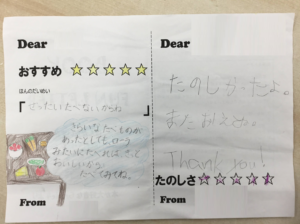 Dear
おすすめ ☆☆☆☆☆
ほんのだいめい
「ぜったいたべないからね」
きらいなたべものが
あったとしても、ローラ
みたいにたべれば、きっと
おいしいから
たべてみてね。
From
Dear
たのしかったよ。
またおえめ。
Thank you!
たのしさ☆☆☆☆☆
From